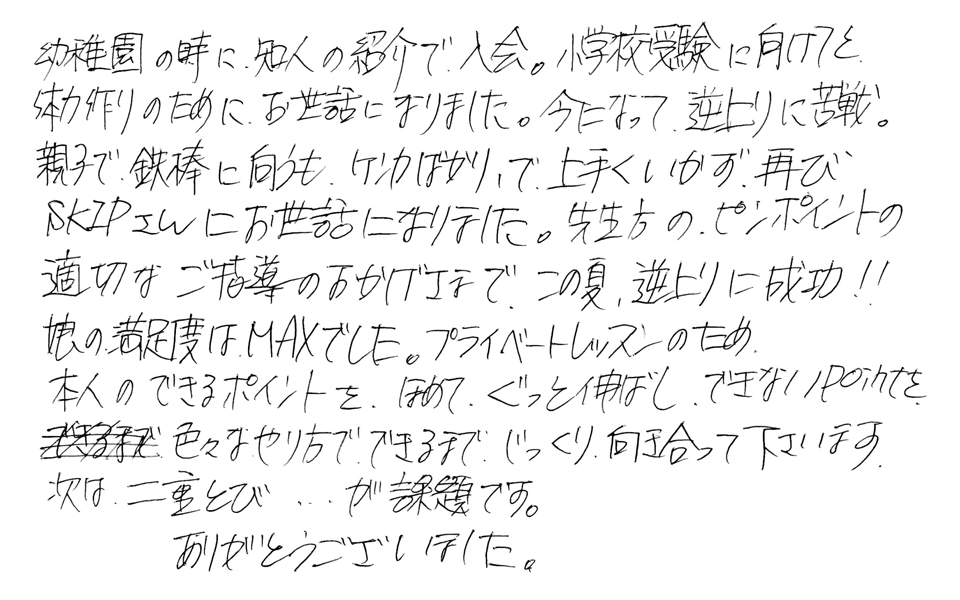 幼稚園の時に、知人の紹介で、入会。小学校受験に向けてと、
体力作りのために、お世話になりました。今になって、逆上りに苦戦。
親子で、鉄棒に向うも、ケンカばかり、で、上手くいかず、再び
SKIPさんにお世話になりました。先生方の、ピンポイントの
適切なご指導のおかげさまで、この夏、逆上りに成功!!
娘の満足度はMAXでした。プライベートレッスンのため、
本人のできるポイントを、ほめて、ぐっと伸ばし、できないPointを、
色々なやり方で、できるまで、じっくり、向き合って下さいます。
次は、二重とび…が課題です。
ありがとうございました。